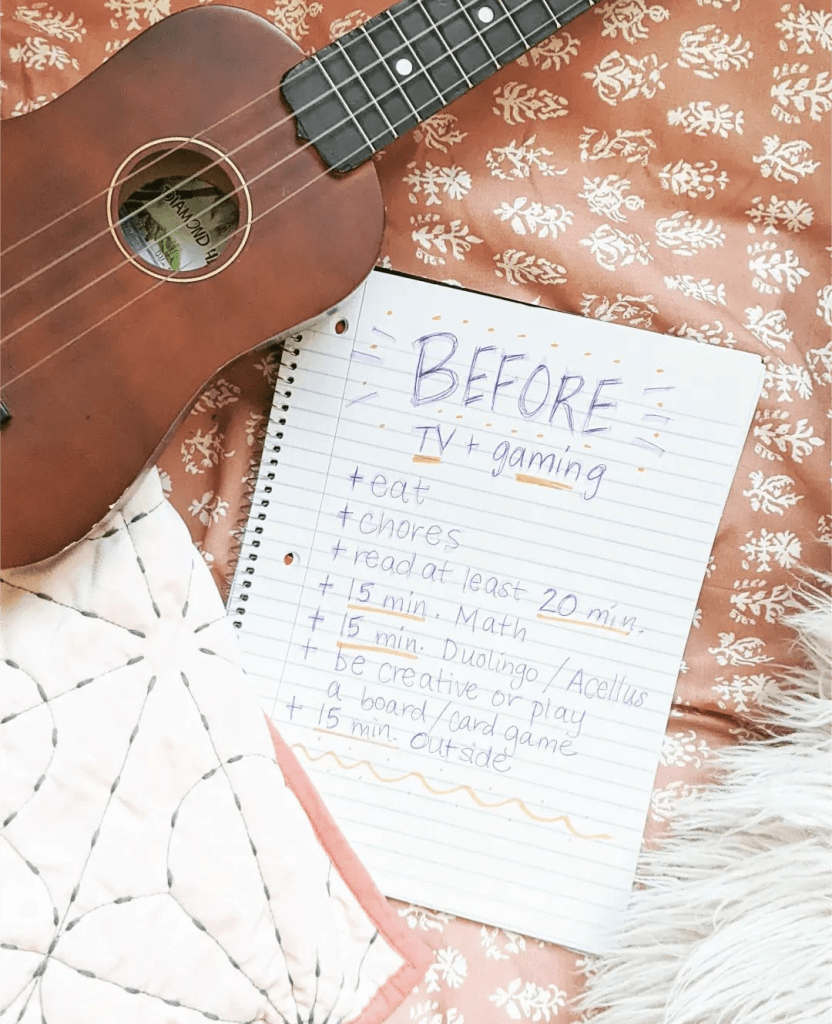 DIAMOND
BEFORE
TV + gaming
+ eat
+ chores
+ read at least 20 min.
+ 15 min. Math
+ 15 min. Duolingo / Acellus
+ be creative or play
a board/card game
+ 15 min. outside